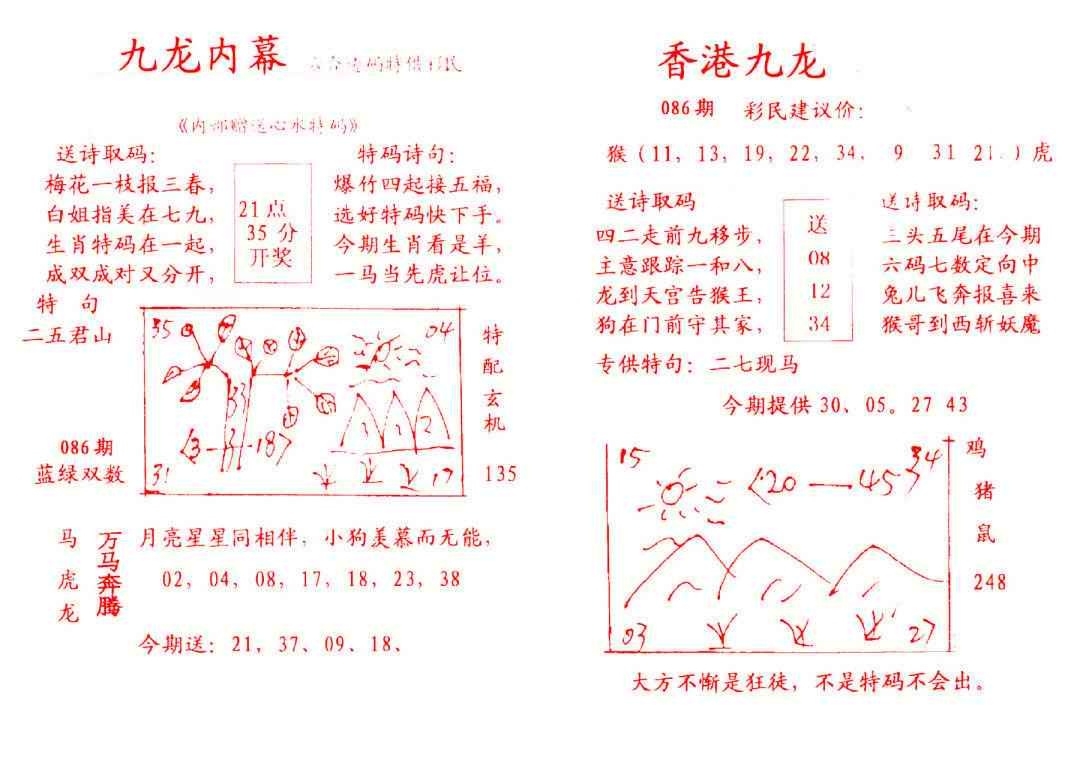 九龙内幕
《内部赠送心水特码》
送诗取码：
梅花一枝报三春，
白姐指美在七九，
生肖特码在一起，
成双成对又分开，
21点
35分
开奖
特码诗句：
爆竹四起接五福，
选好特码快下手。
今期生肖看是羊，
一马当先虎让位。
特 句
二五君山
086期
蓝绿双数
35
04
33
31
17
特配玄机
135
马虎龙
万马奔腾
月亮星星同相伴，小狗羡慕而无能，
02，04，08，17，18，23，38
今期送：21，37、09、18、
香港九龙
086期 彩民建议价：
猴（11，13，19，22，34， 9 31 21.）虎
送诗取码
四二走前九移步，
主意跟踪一和八，
龙到天宫告猴王，
狗在门前守其家，
送
08
12
34
送诗取码：
三头五尾在今期
六码七数定向中
兔儿飞奔报喜来
猴哥到西斩妖魔
专供特句：二七现马
今期提供 30、05。27 43
15
34
20—45
03
27
鸡
猪
鼠
248
大方不惭是狂徒，不是特码不会出。